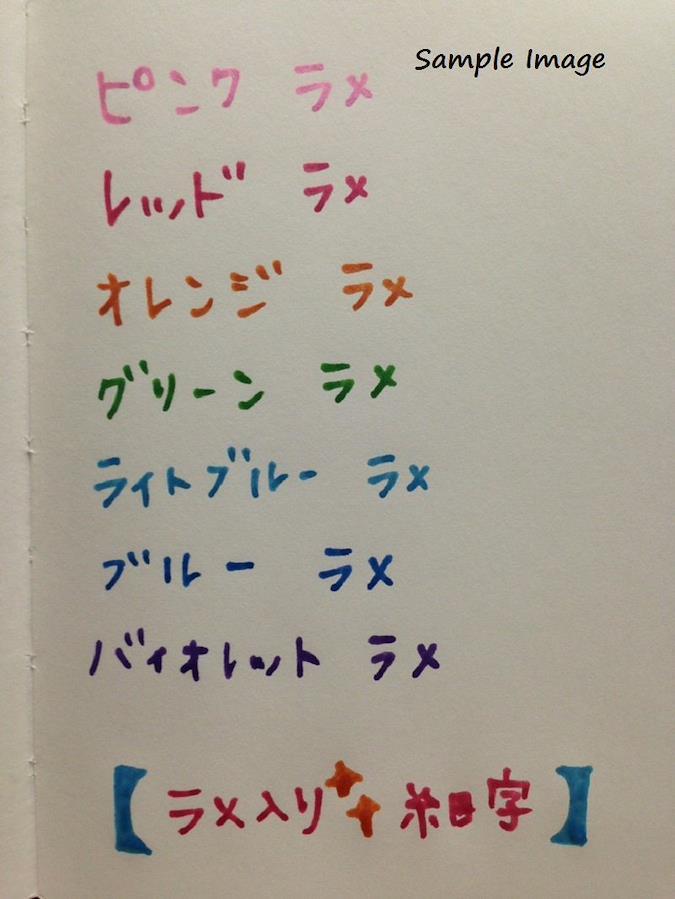 Sample Image
ピンク ラメ
レッド ラメ
オレンジ ラメ
グリーン ラメ
ライトブルー ラメ
ブルー ラメ
バイオレット ラメ
【ラメ入り 細字】